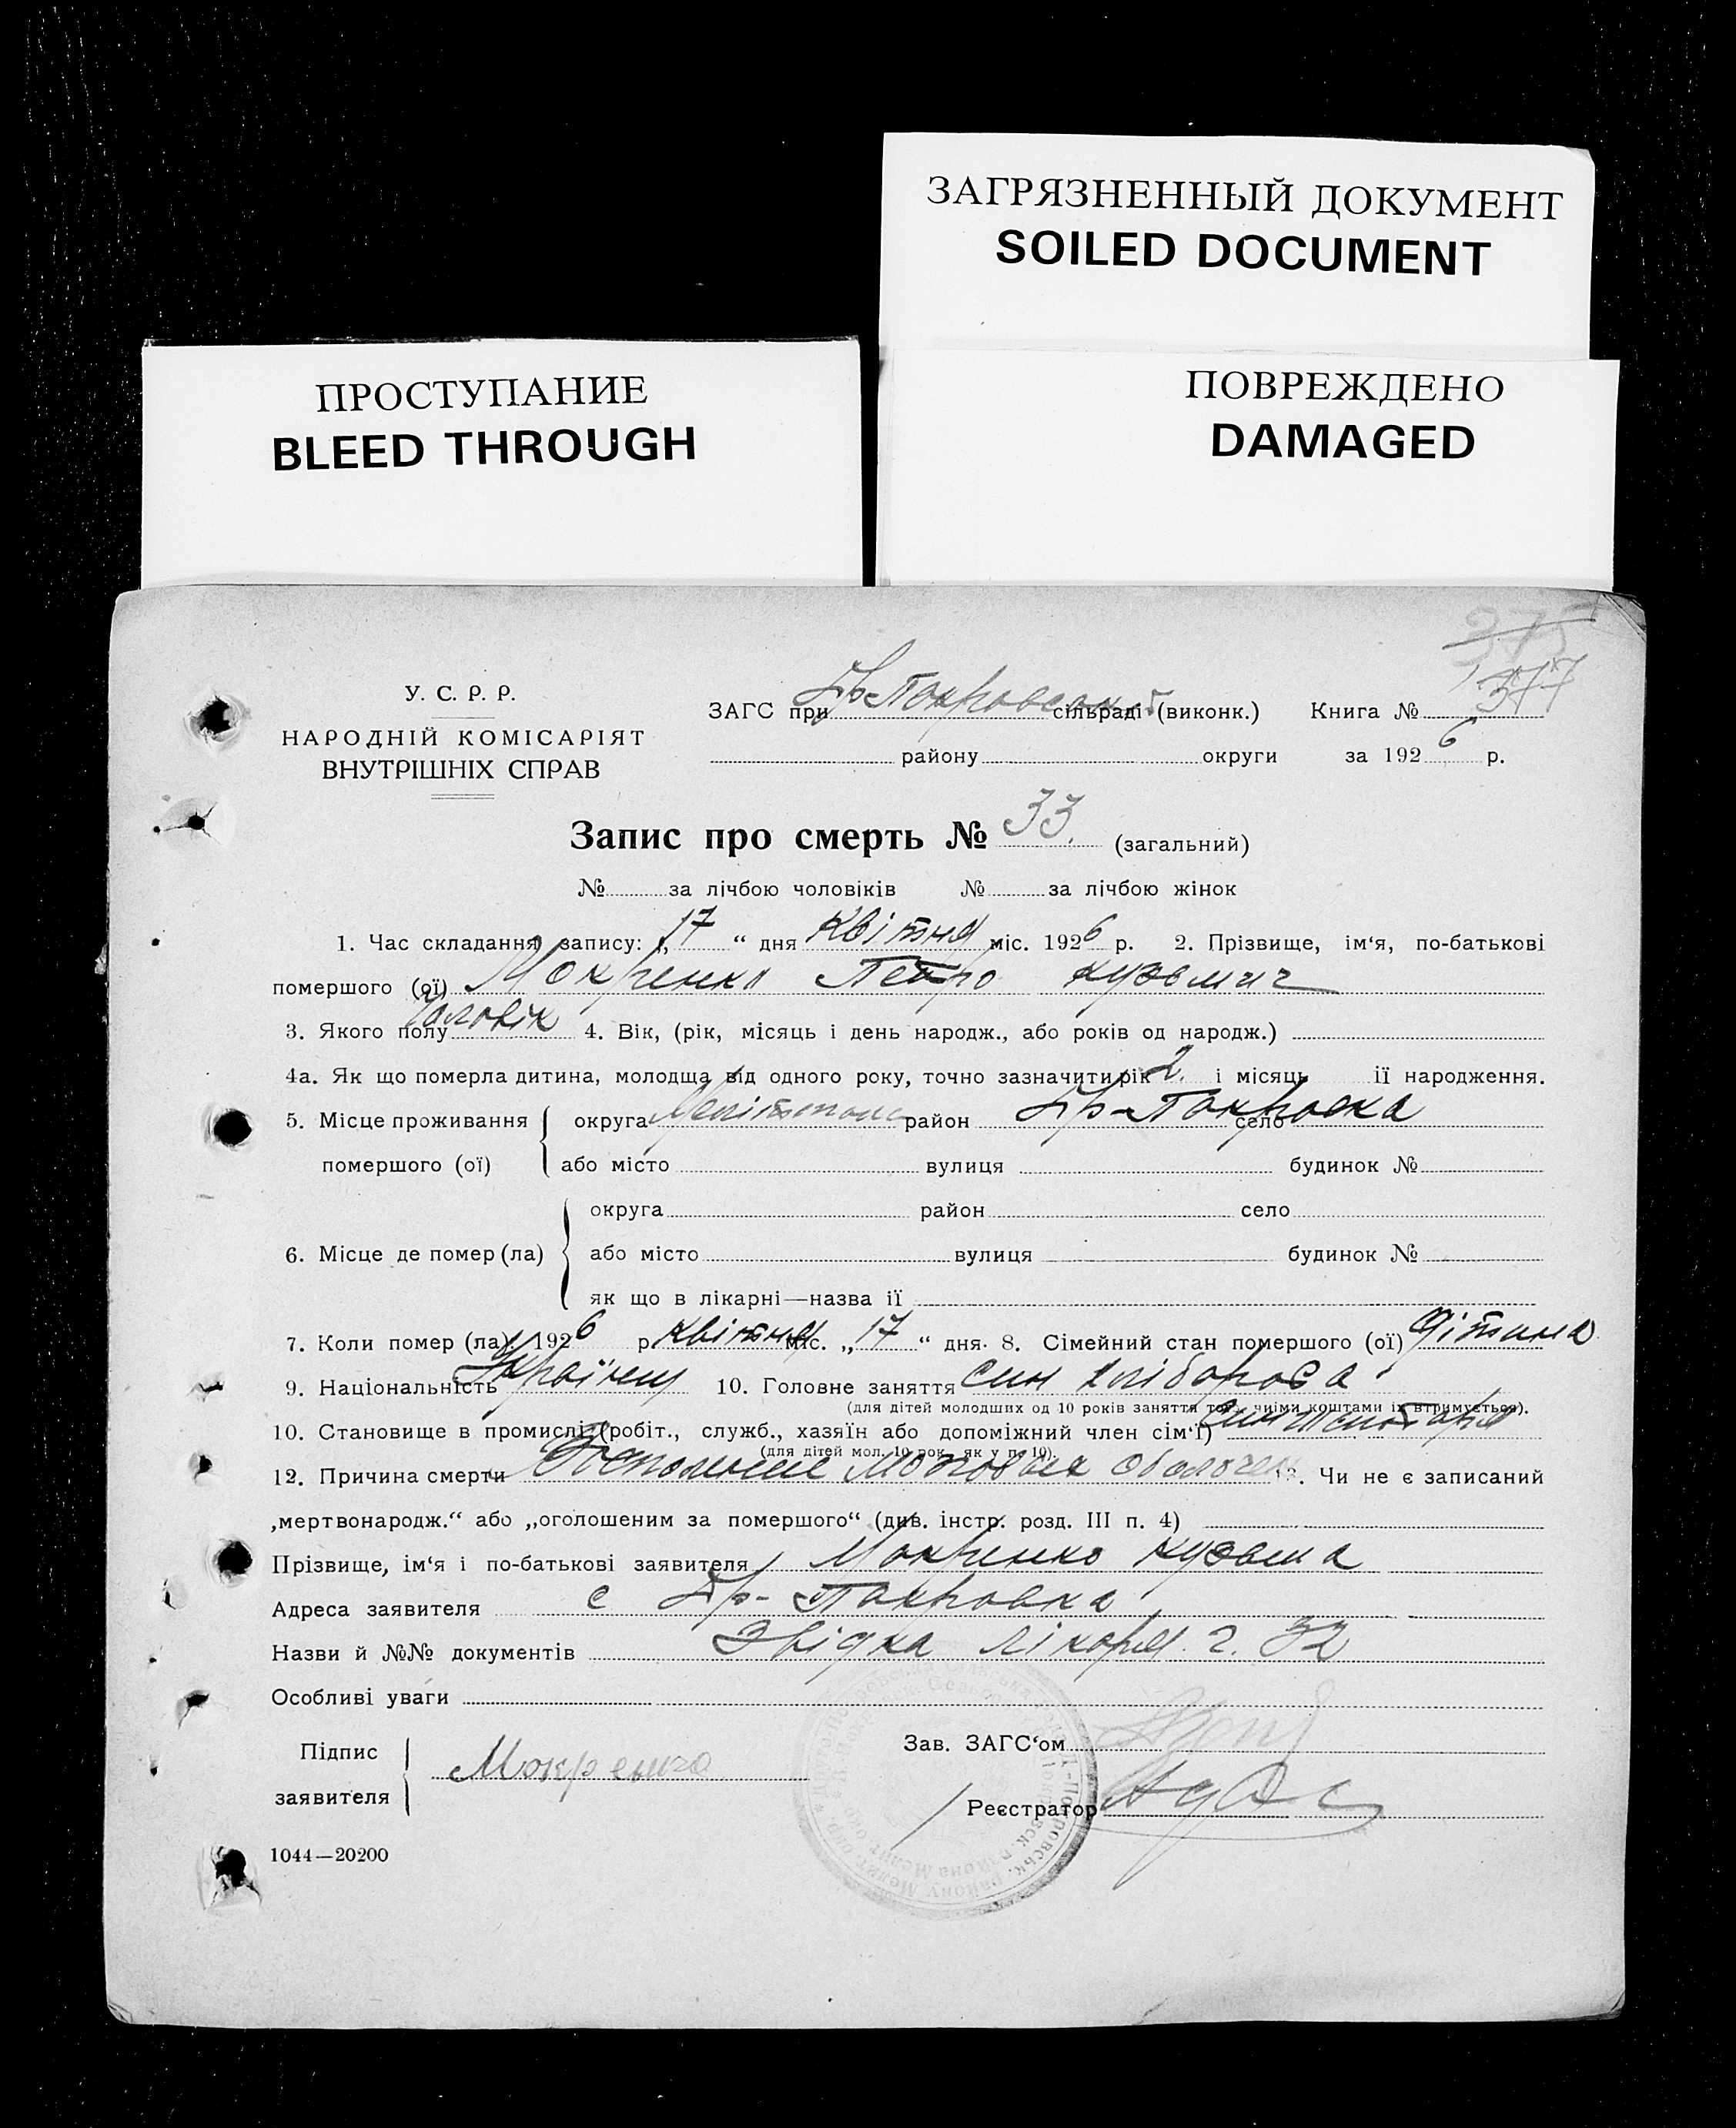 ЗАГРЯЗНЕННЫЙ ДОКУМЕНТ
SOILED DOCUMENT
ПРОСТУПАНИЕ
BLEED THROUGH
ПОВРЕЖДЕНО
DAMAGED
377
У. С. Р. Р.
НАРОДНІЙ КОМІСАРІЯТ
ВНУТРІШНІХ СПРАВ
ЗАГС при сільраді (виконк.) Книга №
району округи за 1926 р.
Запис про смерть № 33. (загальний)
№ за лічбою чоловіків № за лічбою жінок
1. Час складання запису: „17“ дня Квітня міс. 1926 р. 2. Прізвище, ім‘я, по-батькові
помершого (ої) Мокренко Петро Кузьмич
3. Якого полу Чоловік 4. Вік, (рік, місяць і день народж., або років од народж.)
4а. Як що померла дитина, молодща від одного року, точно зазначити рік 2. і місяць її народження.
5. Місце проживання округа район Ір-Покровка село
помершого (ої) або місто вулиця будинок №
округа район село
6. Місце де помер (ла) або місто вулиця будинок №
як що в лікарні—назва її
7. Коли помер (ла) 1926 р. Квітня міс. „17“ дня. 8. Сімейний стан помершого (ої) Дітина
9. Національність Українец 10. Головне заняття син хлібороба
(для дітей молодших од 10 років заняття тог чиїми коштами їх втримується).
10. Становище в промислі (робіт., служб., хазяїн або допоміжний член сім‘ї)
(для дітей мол. 10 рок. як у п. 10).
12. Причина смерти 13. Чи не є записаний
„мертвонародж.“ або „оголошеним за помершого“ (див. інстр. розд. III п. 4)
Прізвище, ім‘я і по-батькові заявителя Мокренко Кузьма
Адреса заявителя с Ір-Покровка
Назви й №№ документів Звідка лікаря г. 32
Особливі уваги
Підпис
заявителя Мокренко
Зав. ЗАГС‘ом
Реєстратор
1044—20200